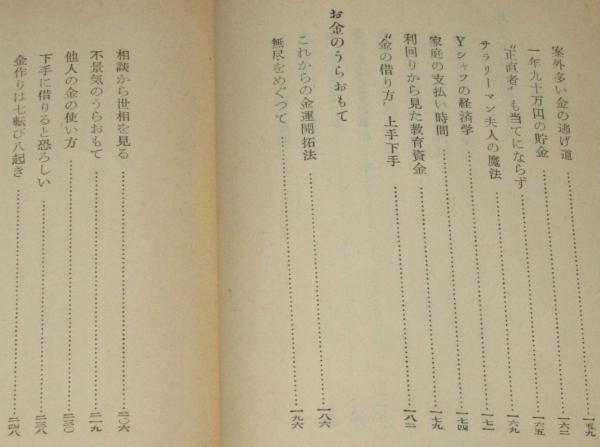 案外多い金の逃げ道……一五九
一年九十万円の貯金……一六二
〝正直者〟も当てにならず……一六五
サラリーマン夫人の魔法……一六九
Yシャツの経済学……一七一
家庭の支払い時間……一七四
利回りから見た教育資金……一七九
〝金の借り方〟上手下手……一八二
お金のうらおもて
これからの金運開拓法……一八六
無尽をめぐつて……一九六
相談から世相を見る……二〇六
不景気のうらおもて……二一九
他人の金の使い方……二三〇
下手に借りると恐ろしい……二三八
金作りは七転び八起き……二四八